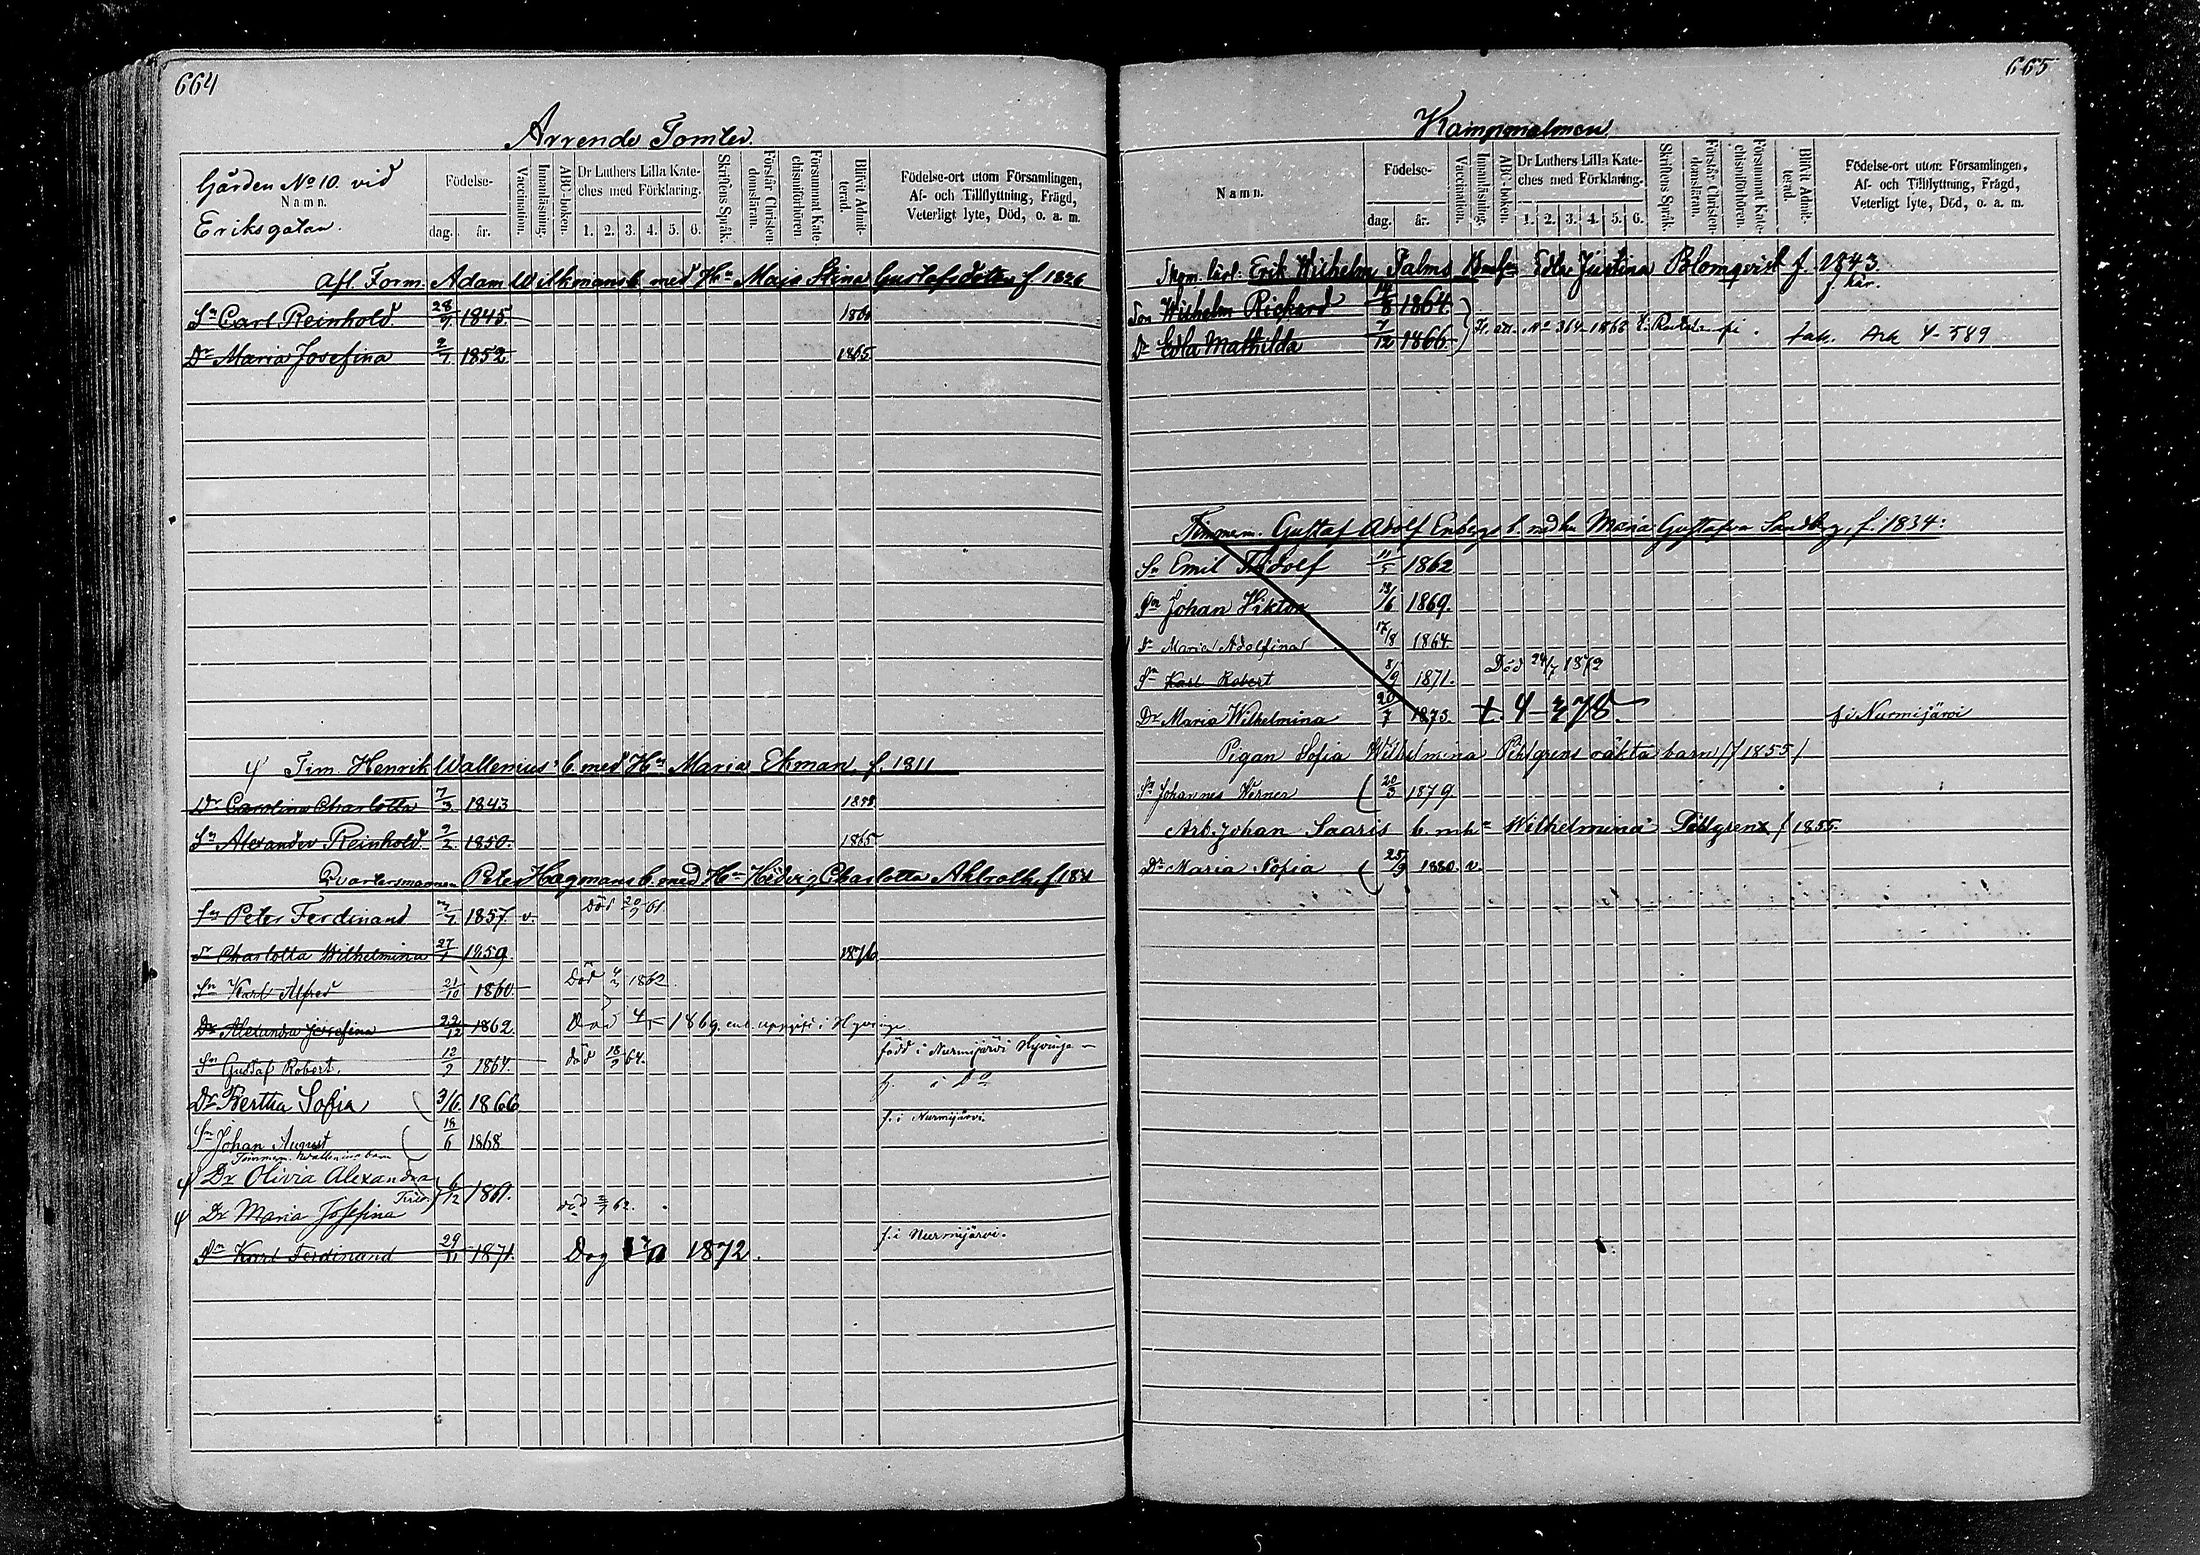 664
Arrende Tomter.
Gården No 10. vid
Namn.
Eriksgatan.
Födelse-
dag. år.
Vaccination.
Innanläsning.
ABC-boken.
Dr Luthers Lilla Kate-
ches med Förklaring.
1. 2. 3. 4. 5. 6.
Skriftens Språk.
Förstår Christen-
domsläran.
Försummat Kate-
chismiförhören.
Blifvit Admit-
terad.
Födelse-ort utom Församlingen,
Af- och Tillflyttning, Frägd,
Veterligt lyte, Död, o. a. m.
Afl. Form. Adam Wilkmans b. med Hu Maja Stina Gustafsdotter f. 1826
Sn Carl Reinhold 28/9 1845. 1860
Dr Maria Josefina 2/7 1852 1865
Tim. Henrik Wallenius' b. med Hu Maria Ekman f. 1811
Dr Carolina Charlotta 7/3 1843 1858
Sn Alexander Reinhold 9/2 1850. 1865
Qvartersmannen Peter Hagmans b. med Hu Hedvig Charlotta Ahlroth f.
Sn Peter Ferdinand 1857. v. Död 20/9 61.
Dr Charlotta Wilhelmina 27/7 1859
Sn Karl Alfred 21/10 1860 Död 1862.
Dr Alexandra Josefina 22/12 1862. Död 1869. enl. uppgift i Hyvinge
Sn Gustaf Robert. 12/9 1864. död 18/9 64. född i Nurmijärvi Hyvinge
Dr Bertha Sofia 3/6. 1866 f. i Do
Sn Johan August 18/6 1868 f. i Nurmijärvi.
Timmerm. Wallenius barn
Dr Olivia Alexandra
6/12 1861.
Dr Maria Josefina död 62.
Sn Karl Ferdinand 29/11 1871. Dog 1872. f. i Nurmijärvi.
665
Kampmalmen
Namn.
Födelse-
dag. år.
Vaccination.
Innanläsning.
ABC-boken.
Dr Luthers Lilla Kate-
ches med Förklaring.
1. 2. 3. 4. 5. 6.
Skriftens Språk.
Förstår Christen-
domsläran.
Försummat Kate-
chismiförhören.
Blifvit Admit-
terad.
Födelse-ort utom Församlingen,
Af- och Tillflyttning, Frägd,
Veterligt lyte, Död, o. a. m.
Erik Wilhelm Palms Edla Justina Blomqvist f. 1843.
f. här.
Son Wilhelm Rickard 14/8 1864.
Dr Edla Mathilda 7/12 1866. No 364 1868 4-589
Timmerm. Gustaf Adolf Enbergs b. med hu Maria Gustafva Sandberg, f. 1834:
Sn Emil Fridolf 11/5 1862
Sn Johan Viktor 13/6 1869.
Dr Maria Adolfina 17/8 1864.
Sn Karl Robert 8/9 1871. Död 24/7 1872
Dr Maria Wilhelmina 20/7 1873. t. 4-378 f. i Nurmijärvi
Pigan Sofia Wilhelmina Pihlgrens oäkta barn /f 1855/
Sn Johannes Verner 20/3 1879
Arb. Johan Saaris b. m hu Wilhelmina Pihlgren f 1855.
Dr Maria Sofia 25/9 1880. v.